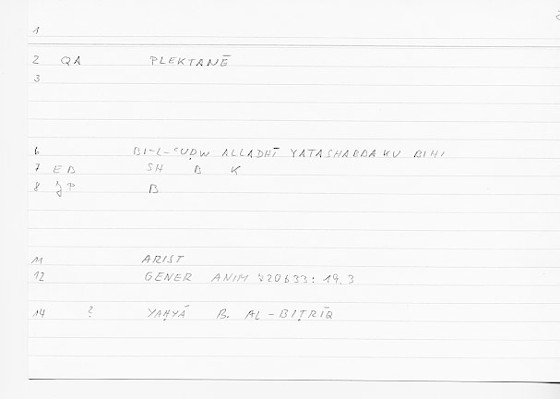 1
2 QA PLEKTANĒ
3
6 BI-L-ʿUḌW ALLADHĪ YATASHABBAKU BIHI
7 ED SH B K
8 B
11 ARIST
12 GENER ANIM 720b33: 19.3
14 ? YAḤYĀ B. AL-BIṬRĪQ